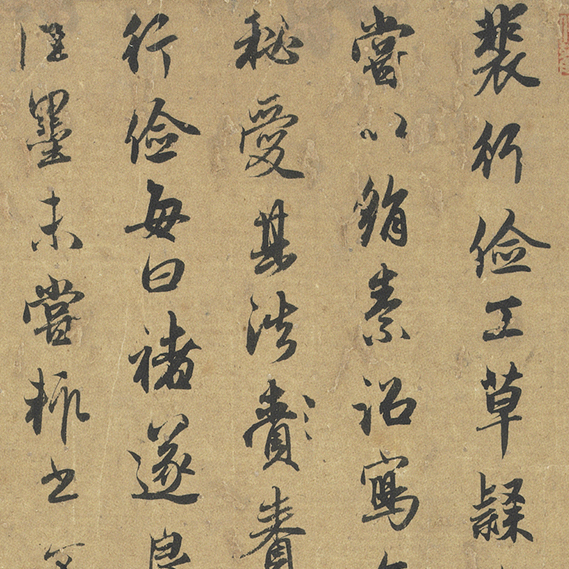 裴行儉工草隸
嘗以絹素詔寫
秘愛其法賚賚
行儉每曰褚遂良
墨未嘗輒書